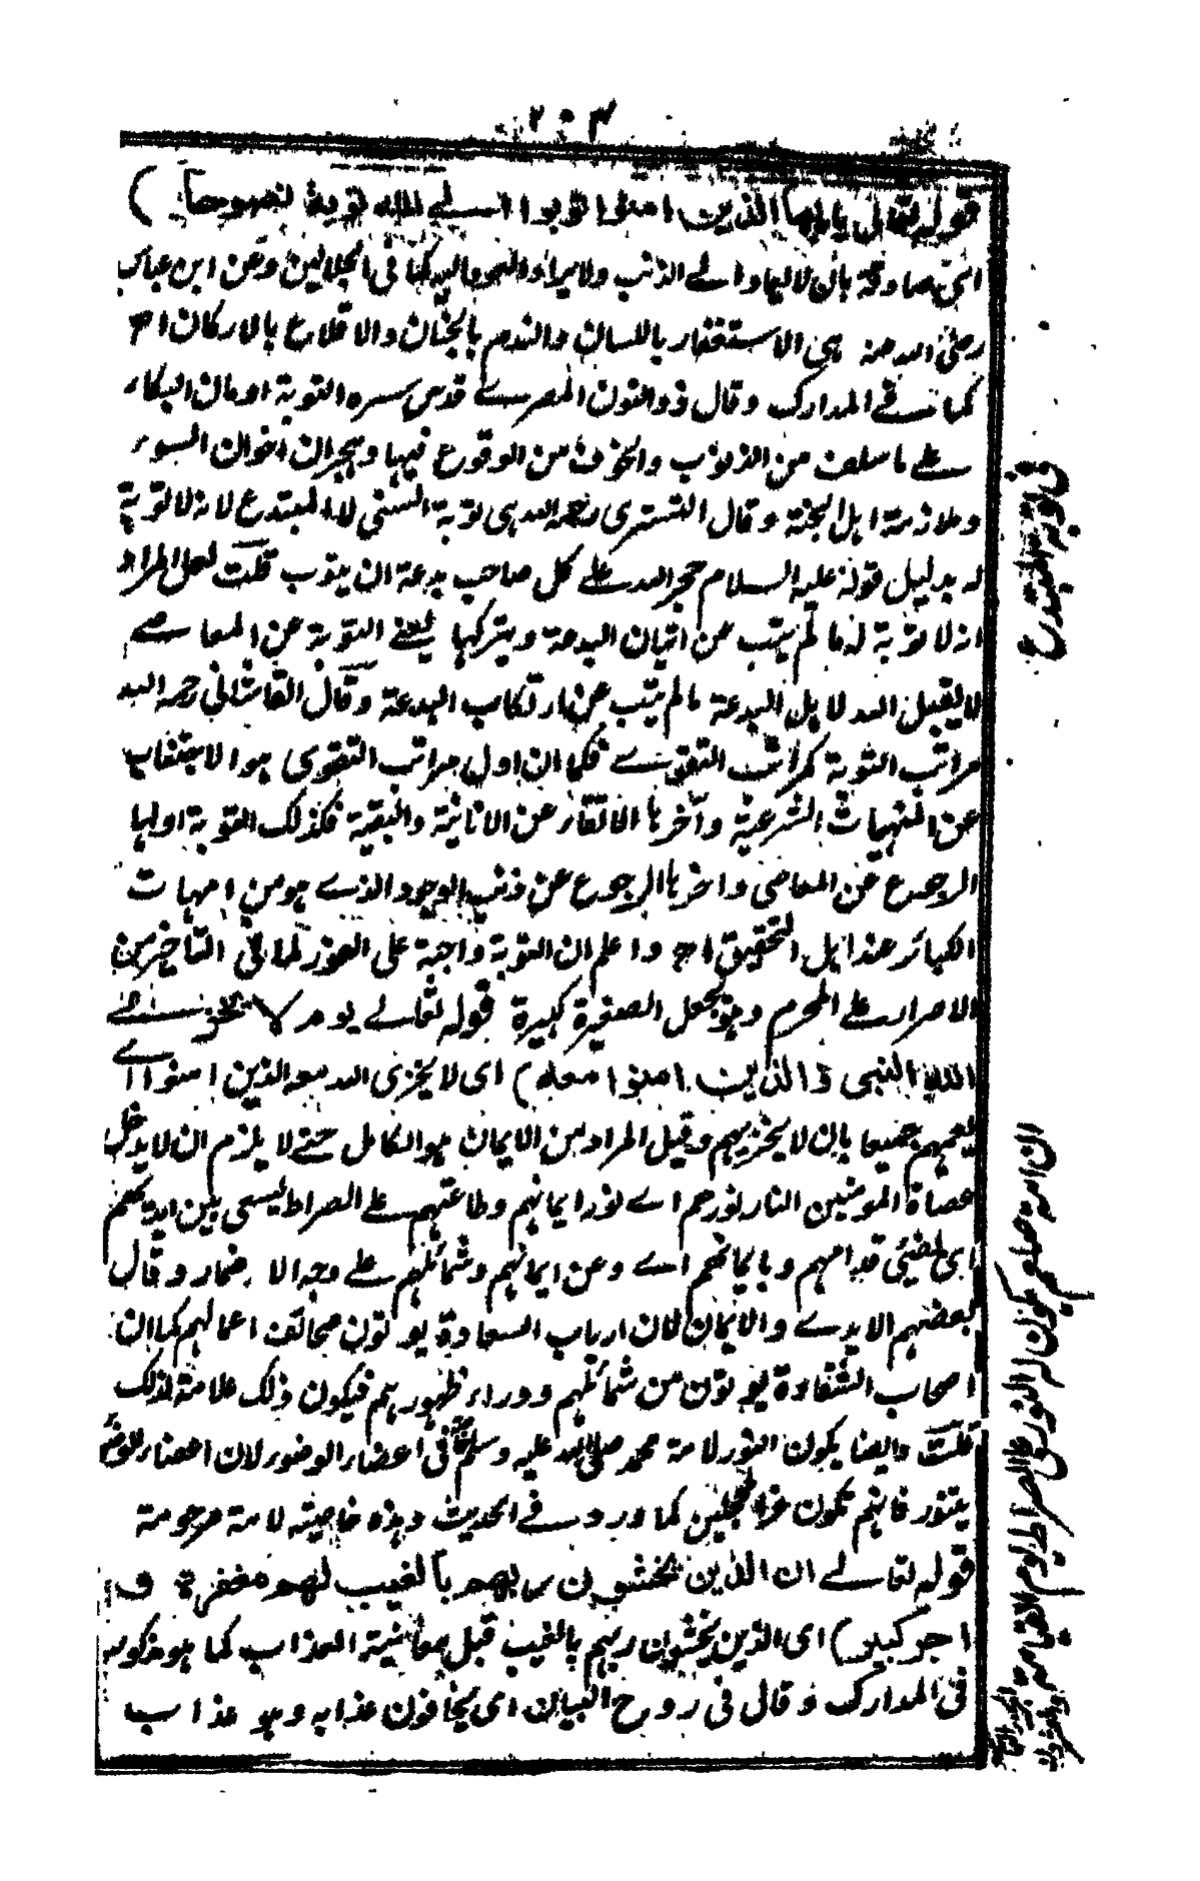 ٢٠٣
قوله تعالى يا ايها الذين امنوا توبوا الى الله توبة نصوحا)
اى صادقة بان لا ليعاد الے الذنب ولا يراد العود اليه كذا فى الجلالين وعن ابن عباس
رضى الله عنه هى الاستغفار باللسان والندم بالجنان والاقلاع بالاركان اه
كما فے المدارك وقال ذو النون المصرے قدس سره التوبة ادمان البكاء
علے ما سلف من الذنوب والخوف من الوقوع فيها وهجران اخوان السوء
وملازمة اهل الجنة وقال التسترى رحمه الله هى توبة السنى لا المبتدع لانه لا توبة
له بدليل قوله عليه السلام حجر الله علے كل صاحب بدعة ان يتوب قلت لعل المراد
انه لا توبة له ما لم يتب عن اتيان البدعة ويتركها يعنے التوبة عن المعاصے
لا يقبل الله لاهل البدعة ما لم يتب عن ارتكاب البدعة وقال القاشانى رحمه الله
مراتب التوبة كمراتب التقوے فكما ان اول مراتب التقوى هو الاجتناب
عن المنهيات الشرعية وآخرها الاتقاء عن الانانية والبقية فكذلك التوبة اولها
الرجوع عن المعاصى واخرها الرجوع عن ذنب الوجود الذے هو من امهات
الكبائر عند اهل التحقيق اه واعلم ان التوبة واجبة على الفور لما فى التاخير من
الاصرار علے المحرم وهو يجعل الصغيرة كبيرة قوله تعالے يوم لا يخزے
الله النبى والذين امنوا معه) اى لا يخزى الله معه الذين امنوا اے
يعمهم جميعا بان لا يخزيهم وقيل المراد من الايمان هو الكامل حتے لا يلزم ان لا يدخل
عصاة المومنين النار نورهم اے نور ايمانهم وطاعتهم علے الصراط يسعى بين ايديهم
اى يضيئى قدامهم وبايمانهم اے وعن ايمانهم وشمائلهم علے وجه الاضمار وقال
بعضهم الايدے والايمان لان ارباب السعادة يوتون صحائف اعمالهم كما ان
اصحاب الشقاوة يوتون من شمائلهم ووراء ظهورهم فيكون ذلك علامة لذلك
قلت وايضا يكون النور لامة محمد صلى الله عليه وسلم فى اعضاء الوضوء لان اعضاء الوضوء
يتنور فانهم يكون غرا محجلين كما ورد فے الحديث وهذه خاصية لامة مرحومة
قوله تعالے ان الذين يخشون ربهم بالغيب لهم مغفرة و
اجر كبير) اى الذين يخشون ربهم بالغيب قبل معاينة العذاب كما هو مذكور
فى المدارك وقال فى روح البيان اى يخافون عذابه وهو عذاب
ف توبة المبتدع
ان امة صلعم يكون له النور على الصراط يوم القيامة